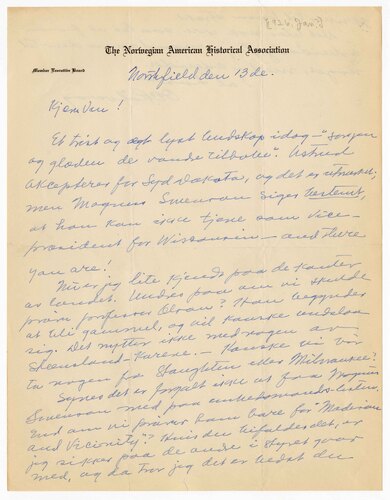 [1926, Jan?]
The Norwegian American Historical Association
Member Executive Board
Northfield den 13de.
Kjære Ven!
Et trist og et lyst budskap idag – "Sorgen
og glæden de vandre tilhobe". Østrud
akcepterer for Syd Dakota, og det er utmerket;
men Magnus Swenson siger bestemt,
at han kan ikke tjene som vice-
president for Wisconsin – and there
you are!
Nu er jeg lite kjendt paa de kanter
av landet. Undres paa om vi skulde
prøve professor Olson? Han begynder
at bli gammel, og vil kanske undslaa
sig. Det nytter ikke med nogen av
– Kanske vi bør
ta nogen fra Stoughton eller Milwaukee?
Synes det er forgalt ikke at faa Magnus
Swenson med paa embedsmands-listen.
End om vi prøver ham bare for "Madison
and Vicinity"? Hvis du tilfalder det, er
jeg sikker paa de andre i styret gaar
med, og da tror jeg det er bedst du